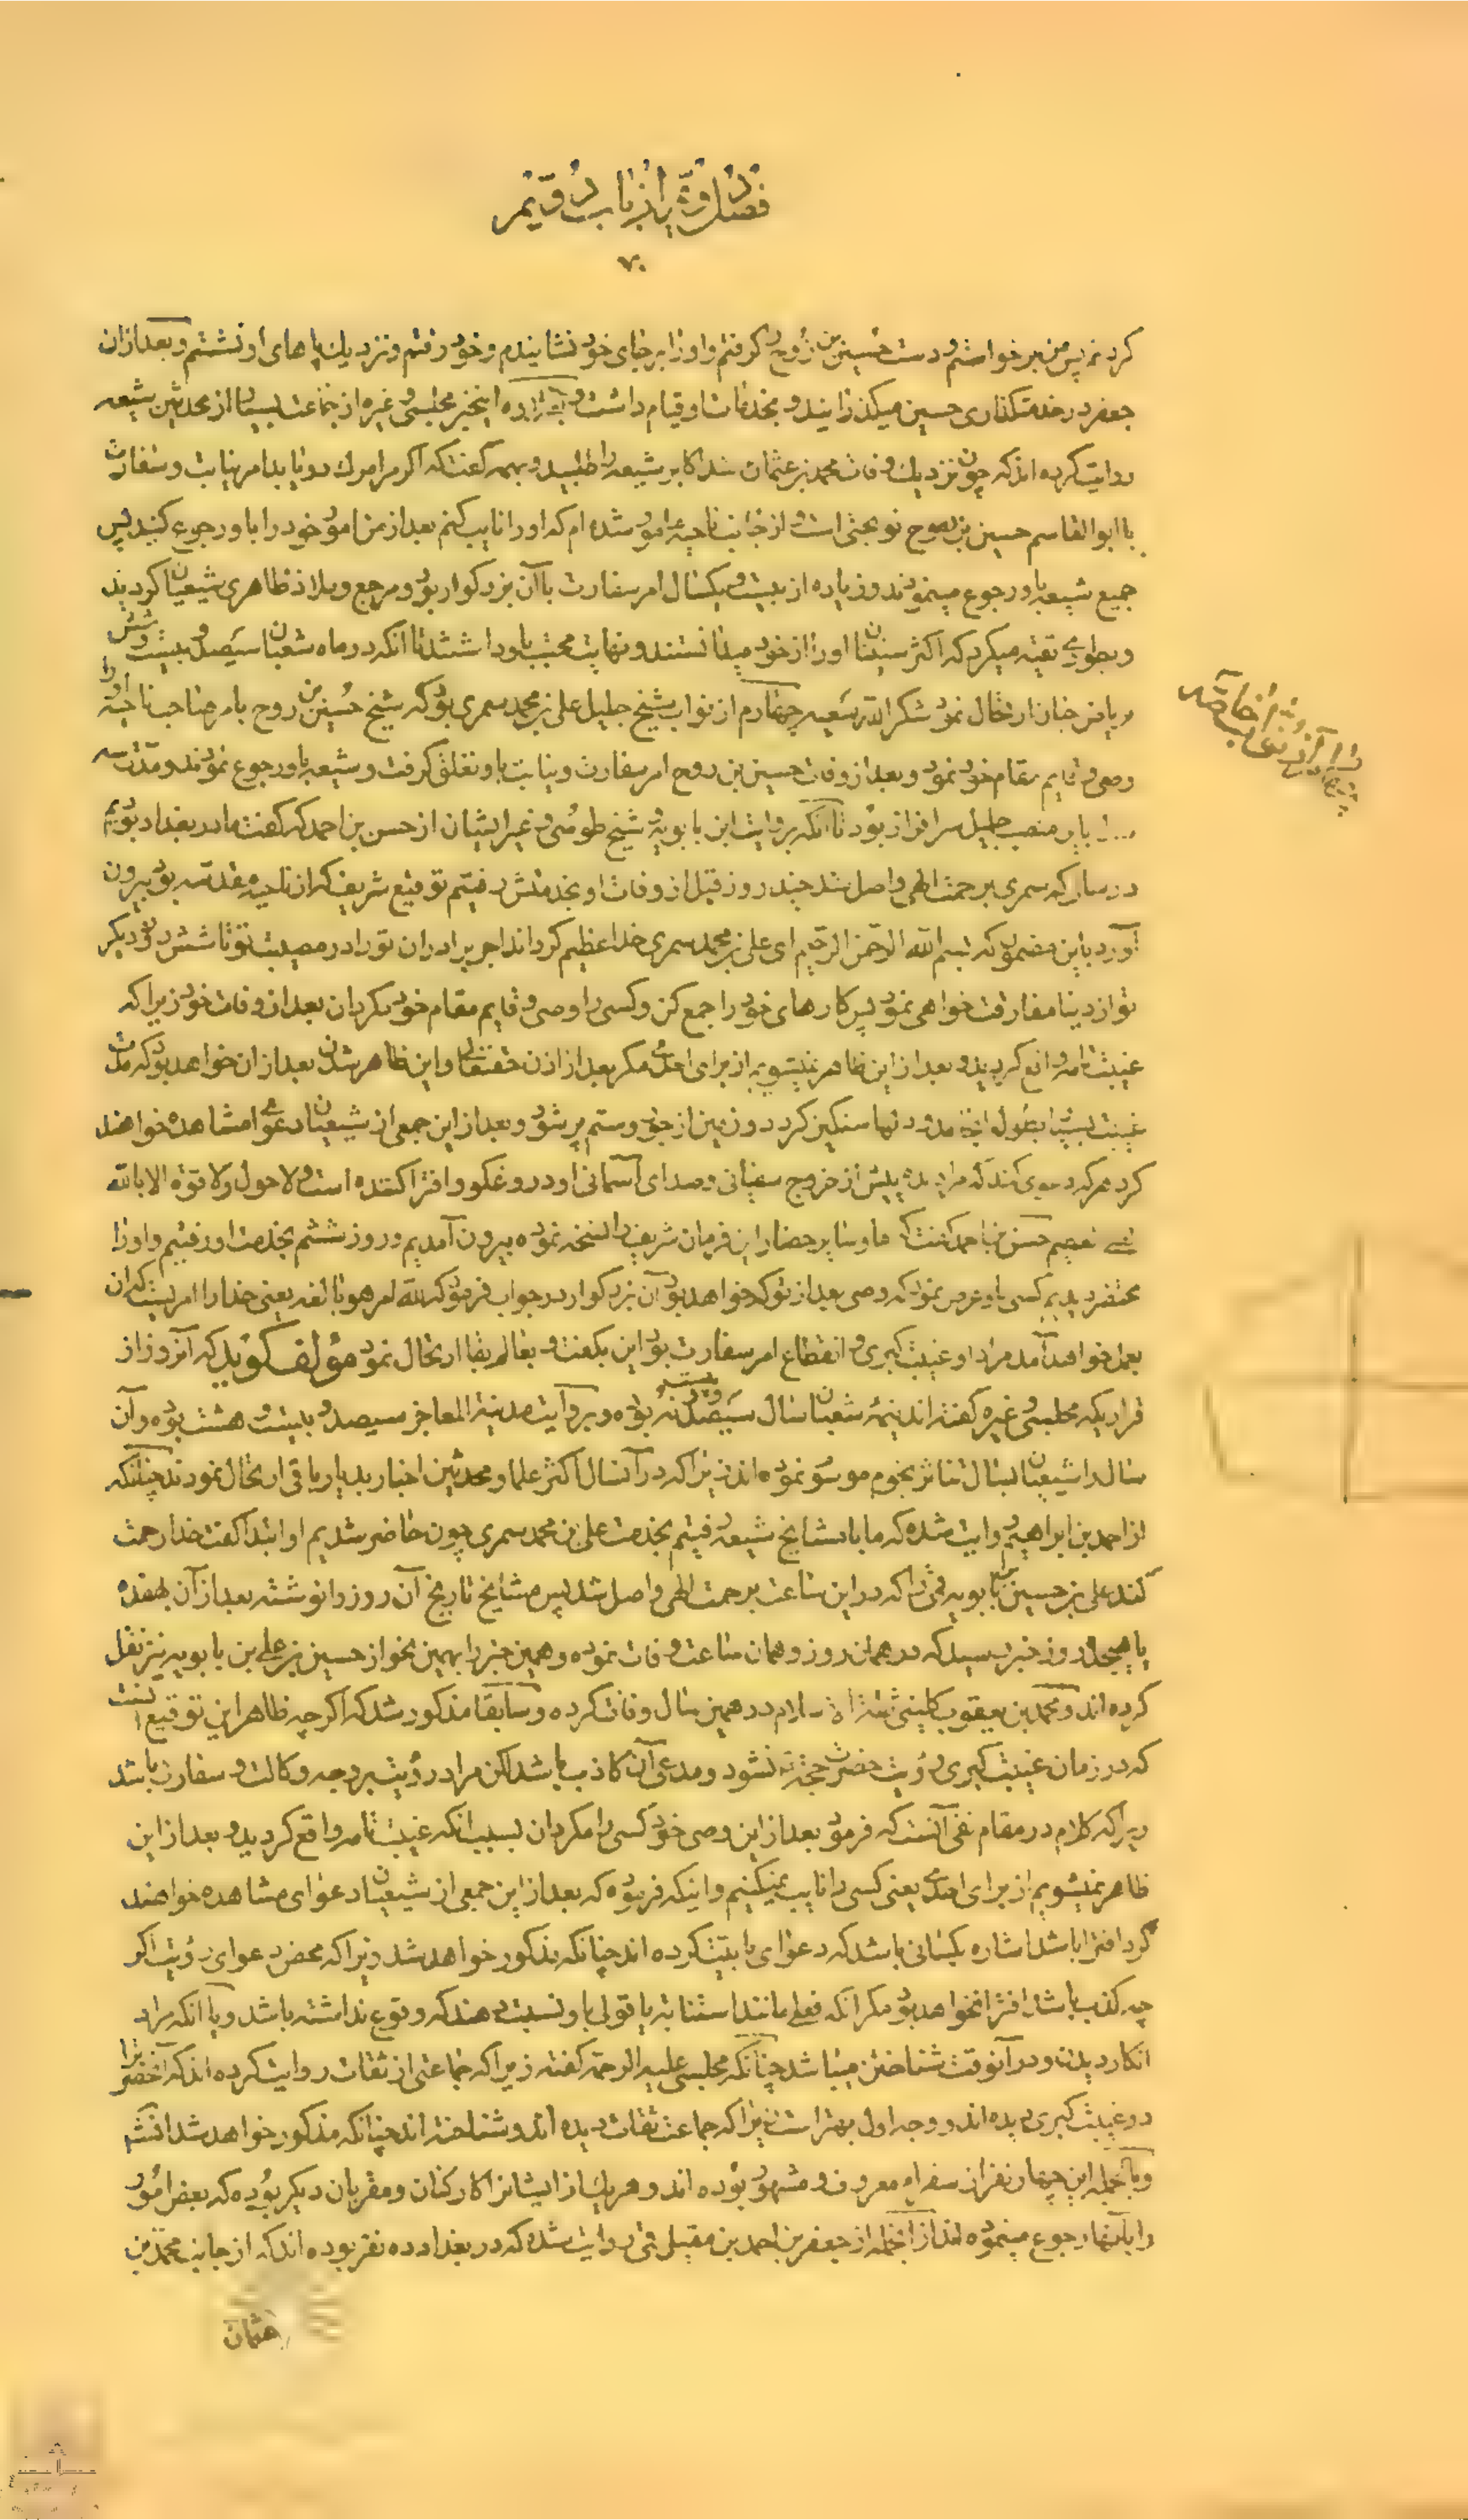 فصل دوم از باب دویم
۷۰
کردم پس من برخواستم و دست حسین بن روح گرفتم و او را برجای خود نشانیدم و خود رفتم و نزدیك پاهای او نشستم و بعد از ان
جعفر در خدمتکذاری حسین میکذرانید و بخدمات او قیام داشت و این خبر مجلسی و غیره از جماعت بسیار از محدثین شیعه
روایت کرده اند که چون نزدیك وفات محمد بن عثمان شد اکابر شیعه را طلبید و بهمه کفت که اکر مرا مرك دریابد امر نیابت و سفارت
با ابوالقاسم حسین بن روح نوبختی است و از جانب ناحیه مامور شده ام که او را نایب کنم بعد از من امور خود را باو رجوع کنید پس
جمیع شیعه باو رجوع مینمودند و زیاده از بیست و یکسال امر سفارت با آن بزرکوار بود و مرجع و ملاذ ظاهری شیعیان کردید
و بطوری تقیه میکرد که اکثر سنیان او را از خود میدانستند و نهایت محبت باو داشتند تا انکه در ماه شعبان سیصد و بیست و شش
بریاض جنان ارتحال نمود شکر الله سعیه چهارم از نواب شیخ جلیل علی بن محمد سمری بود که شیخ حسین بن روح بامر صاحب ناحیه او را
وصی و قایم مقام خود نمود و بعد از وفات حسین بن روح امر سفارت و نیابت باو تعلق کرفت و شیعه باو رجوع نمودند و مدت سه
باین منصب جلیل سرافراز بود تا آنکه بروایت ابن بابویه و شیخ طوسی و غیر ایشان از حسن بن احمد که کفت ما در بغداد بودیم
در سالی که سمری برحمت الهی واصل شد چند روز قبل از وفات او بخدمتش رفتیم توقیع شریف که از ناحیه مقدسه بود بیرون
آورد باین مضمون که بسم الله الرحمن الرحیم ای علی بن محمد سمری خدا عظیم کرداند اجر برادران تو را در مصیبت تو تا شش روز دیکر
تو از دنیا مفارقت خواهی نمود پس کارهای خود را جمع کن و کسی را وصی و قایم مقام خود مکردان بعد از وفات خود زیرا که
غیبت تامه واقع کردید و بعد از این ظاهر نمیشویم از برای احدی مکر بعد از اذن حقتعالی و این ظاهر شدن بعد از ان خواهد بود که مدت
غیبت بسیار بطول انجامد و دلها سنکین کردد و زمین از جور و ستم پر شود و بعد از این جمعی از شیعیان دعوی مشاهده خواهند
کرد هر که دعوی کند که مرا دیده پیش از خروج سفیانی و صدای آسمانی او دروغکو و افترا کننده است و لا حول ولا قوة الا بالله
حسن بن احمد کفت که ما و سایر حضار این فرمان شریف را نسخه نموده بیرون آمدیم و روز ششم بخدمت او رفتیم و او را
محتضر دیدیم کسی باو عرض نمود که وصی بعد از تو که خواهد بود آن بزرکوار در جواب فرمود که لله امر هو بالغه یعنی خدا را امریست که ان
بعمل خواهد آمد مراد او غیبت کبری و انقطاع امر سفارت بود این بکفت و بعالم بقا ارتحال نمود مؤلف کوید که آنروز از
قراریکه مجلسی و غیره کفته اند نیمه شعبان سال سیصد و بیست و نه بوده و بروایت مدینة المعاجز سیصد و بیست و هشت بوده و آن
سال را شیعیان بسال تناثر نجوم موسوم نموده اند زیرا که در آنسال اکثر علما و محدثین اخبار بدار باقی ارتحال نمودند چنانکه
از احمد بن ابراهیم روایت شده که ما با مشایخ شیعه رفتیم بخدمت علی بن محمد سمری چون حاضر شدیم او ابتدا کفت خدا رحمت
کند علی بن حسین بابویه قمی را که در این ساعت برحمت الهی واصل شد پس مشایخ تاریخ آن روز را نوشتند بعد از آن بهفده
یا هیجده روز خبر رسید که در همان روز و همان ساعت وفات نموده و همین خبر را بهمین نحو از حسین بن علی بن بابویه نیز نقل
کرده اند و محمد بن یعقوب کلینی ثقة الاسلام در همین سال وفات کرده و سابقا مذکور شد که اکرچه ظاهر این توقیع آنست
که در زمان غیبت کبری رؤیت حضرت حجة نشود و مدعی آن کاذب باشد لکن مراد رؤیت بر وجه وکالت و سفارت باشد
زیرا که کلام در مقام نفی آنست که فرمود بعد از این وصی خود کسی را مکردان بسبب انکه غیبت تامه واقع کردید و بعد از این
ظاهر نمیشویم از برای احدی یعنی کسی را نایب نمیکنیم و اینکه فرموده که بعد از این جمعی از شیعیان دعوای مشاهده خواهند
کرد افترا باشد اشاره بکسانی باشد که دعوای بابیت کرده اند چنانکه مذکور خواهد شد زیرا که محض دعوای رؤیت اکر
چه کذب باشد افترا نخواهد بود مکر انکه فعلی مانند استنابه یا قولی باو نسبت دهند که وقوع نداشته باشد و یا انکه مراد
انکار دیدن و در آنوقت شناختن میباشد چنانکه مجلسی علیه الرحمة کفته زیرا که جماعتی از ثقات روایت کرده اند که آنحضرت را
در غیبت کبری دیده اند و وجه اول بهتر است زیرا که جماعت ثقات دیده اند و شناخته اند چنانکه مذکور خواهد شد انشا
و بالجمله این چهار نفر از سفراء معروف و مشهور بوده اند و هریك از ایشانرا کارکنان و مقربان دیکر بوده که بعض امور
را بآنها رجوع مینموده اند از آنجمله از جعفر بن احمد بن مقبل قمی روایت شده که در بغداد ده نفر بوده اند که از جانب محمد بن
عثمان